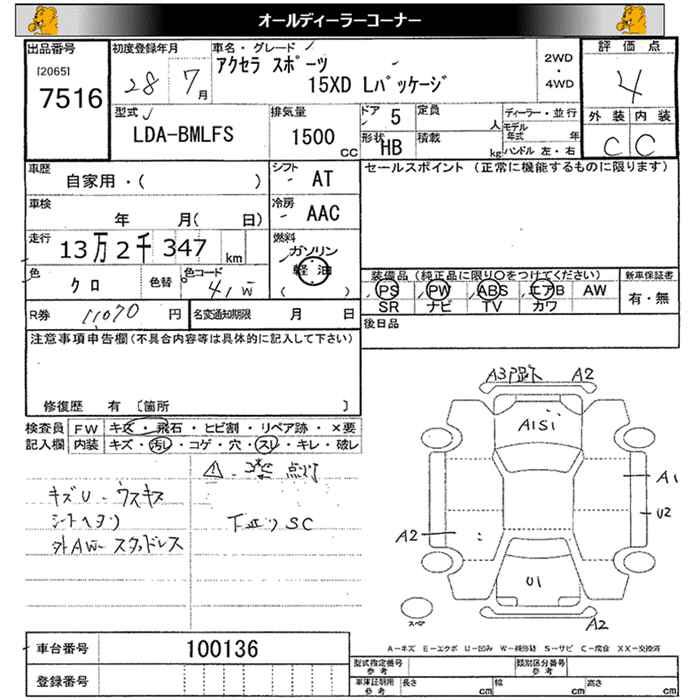 オールディーラーコーナー
出品番号 初度登録年月 車名・グレード 2WD・4WD 評価点
[2065]
7516
28 7月
アクセラ スポーツ
15XD Lパッケージ
4
型式 LDA-BMLFS
排気量 1500 CC
ドア 5 定員 人
形状 HB 積載 kg
ディーラー・並行
モデル年式 年
ハンドル 左・右
外装 内装
C C
車歴 自家用・( )
シフト AT
セールスポイント (正常に機能するものに限ります)
車検 年 月( 日)
冷房 AAC
走行 13万2千347 km
燃料 ガソリン
軽油
( )
色 クロ 色替 色コード 41W
装備品 (純正品に限り○をつけてください) 新車保証書
PS PW ABS エアB AW 有・無
SR ナビ TV カワ
R券 11070 円 名変通知期限 月 日
後日品
注意事項申告欄(不具合内容等は具体的に記入して下さい)
修復歴 有 〔箇所 〕
検査員 FW キズ・飛石・ヒビ割・リペア跡・×要
記入欄 内装 キズ・汚レ・コゲ・穴・スレ・キレ・破レ
点灯
キズU・ウスキズ
シートヘタリ
下廻りSC
外AW スタッドレス
A3 A2
A1S1
A1
U2
A2
U1
スペア
A2
A-キズ E-エクボ U-凹み W-補修跡 S-サビ C-腐食 XX-交換済
車台番号 100136
登録番号
型式指定番号 参考 類別区分番号 参考
車庫証明用 参考 長さ cm 幅 cm 高さ cm